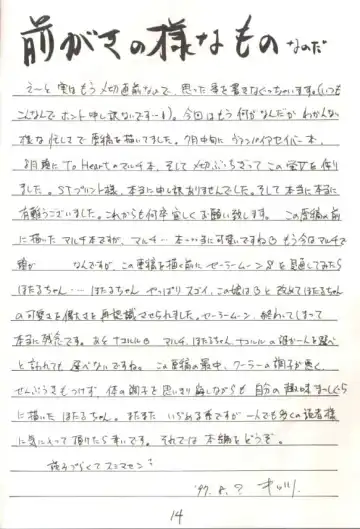 前がきの様なもの なのだ
え〜と実はもう〆切直前なので、思った事を書きなぐっちゃいます。(いつも
こんなんでホント申し訳ないです…)。今回はもう何がなんだかわかんない
様な忙しさで原稿を描いてました。7月中旬に ヴァンパイアセイバー本、
8月頭に To Heartのマルチ本、そして〆切ぶっちぎってこの本を作り
ました。STプリント様、本当に申し訳ありませんでした。そして本当に本当に
有難うございました。これからも何卒宜しくお願い致します。 この原稿の前
に描いたマルチ本ですが、マルチ…本当に可愛いですね もう今はマルチで
頭が なんですが、この原稿を描く前にセーラームーンSを見直してみたら
ほたるちゃん…ほたるちゃん やっぱりスゴイ、この娘は と改めてほたるちゃん
の可愛さを偉大さを再認識させられました。セーラームーン、終わってしまって
本当に残念です。あぁ ナコルル マルチ、ほたるちゃん、ナコルルの誰か一人を選べ
と言われても 選べないですね。 この原稿の最中、クーラーの調子が悪く、
せんぷうきもつけず、体の調子を思いきり崩しながらも 自分の趣味まっしぐら
に描いた ほたるちゃん。まだまだ いぢめる子ですが 一人でも多くの読者様
に気に入って頂けたら幸いです。それでは 本編をどうぞ。
読みづらくてスミマセン
'97. 8. ?
14